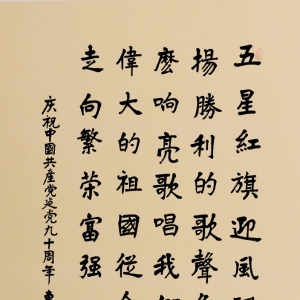 五星紅旗迎風
揚勝利的歌聲
麽响亮歌唱我
偉大的祖國從
走向繁荣富强
庆祝中國共産党建党九十周年